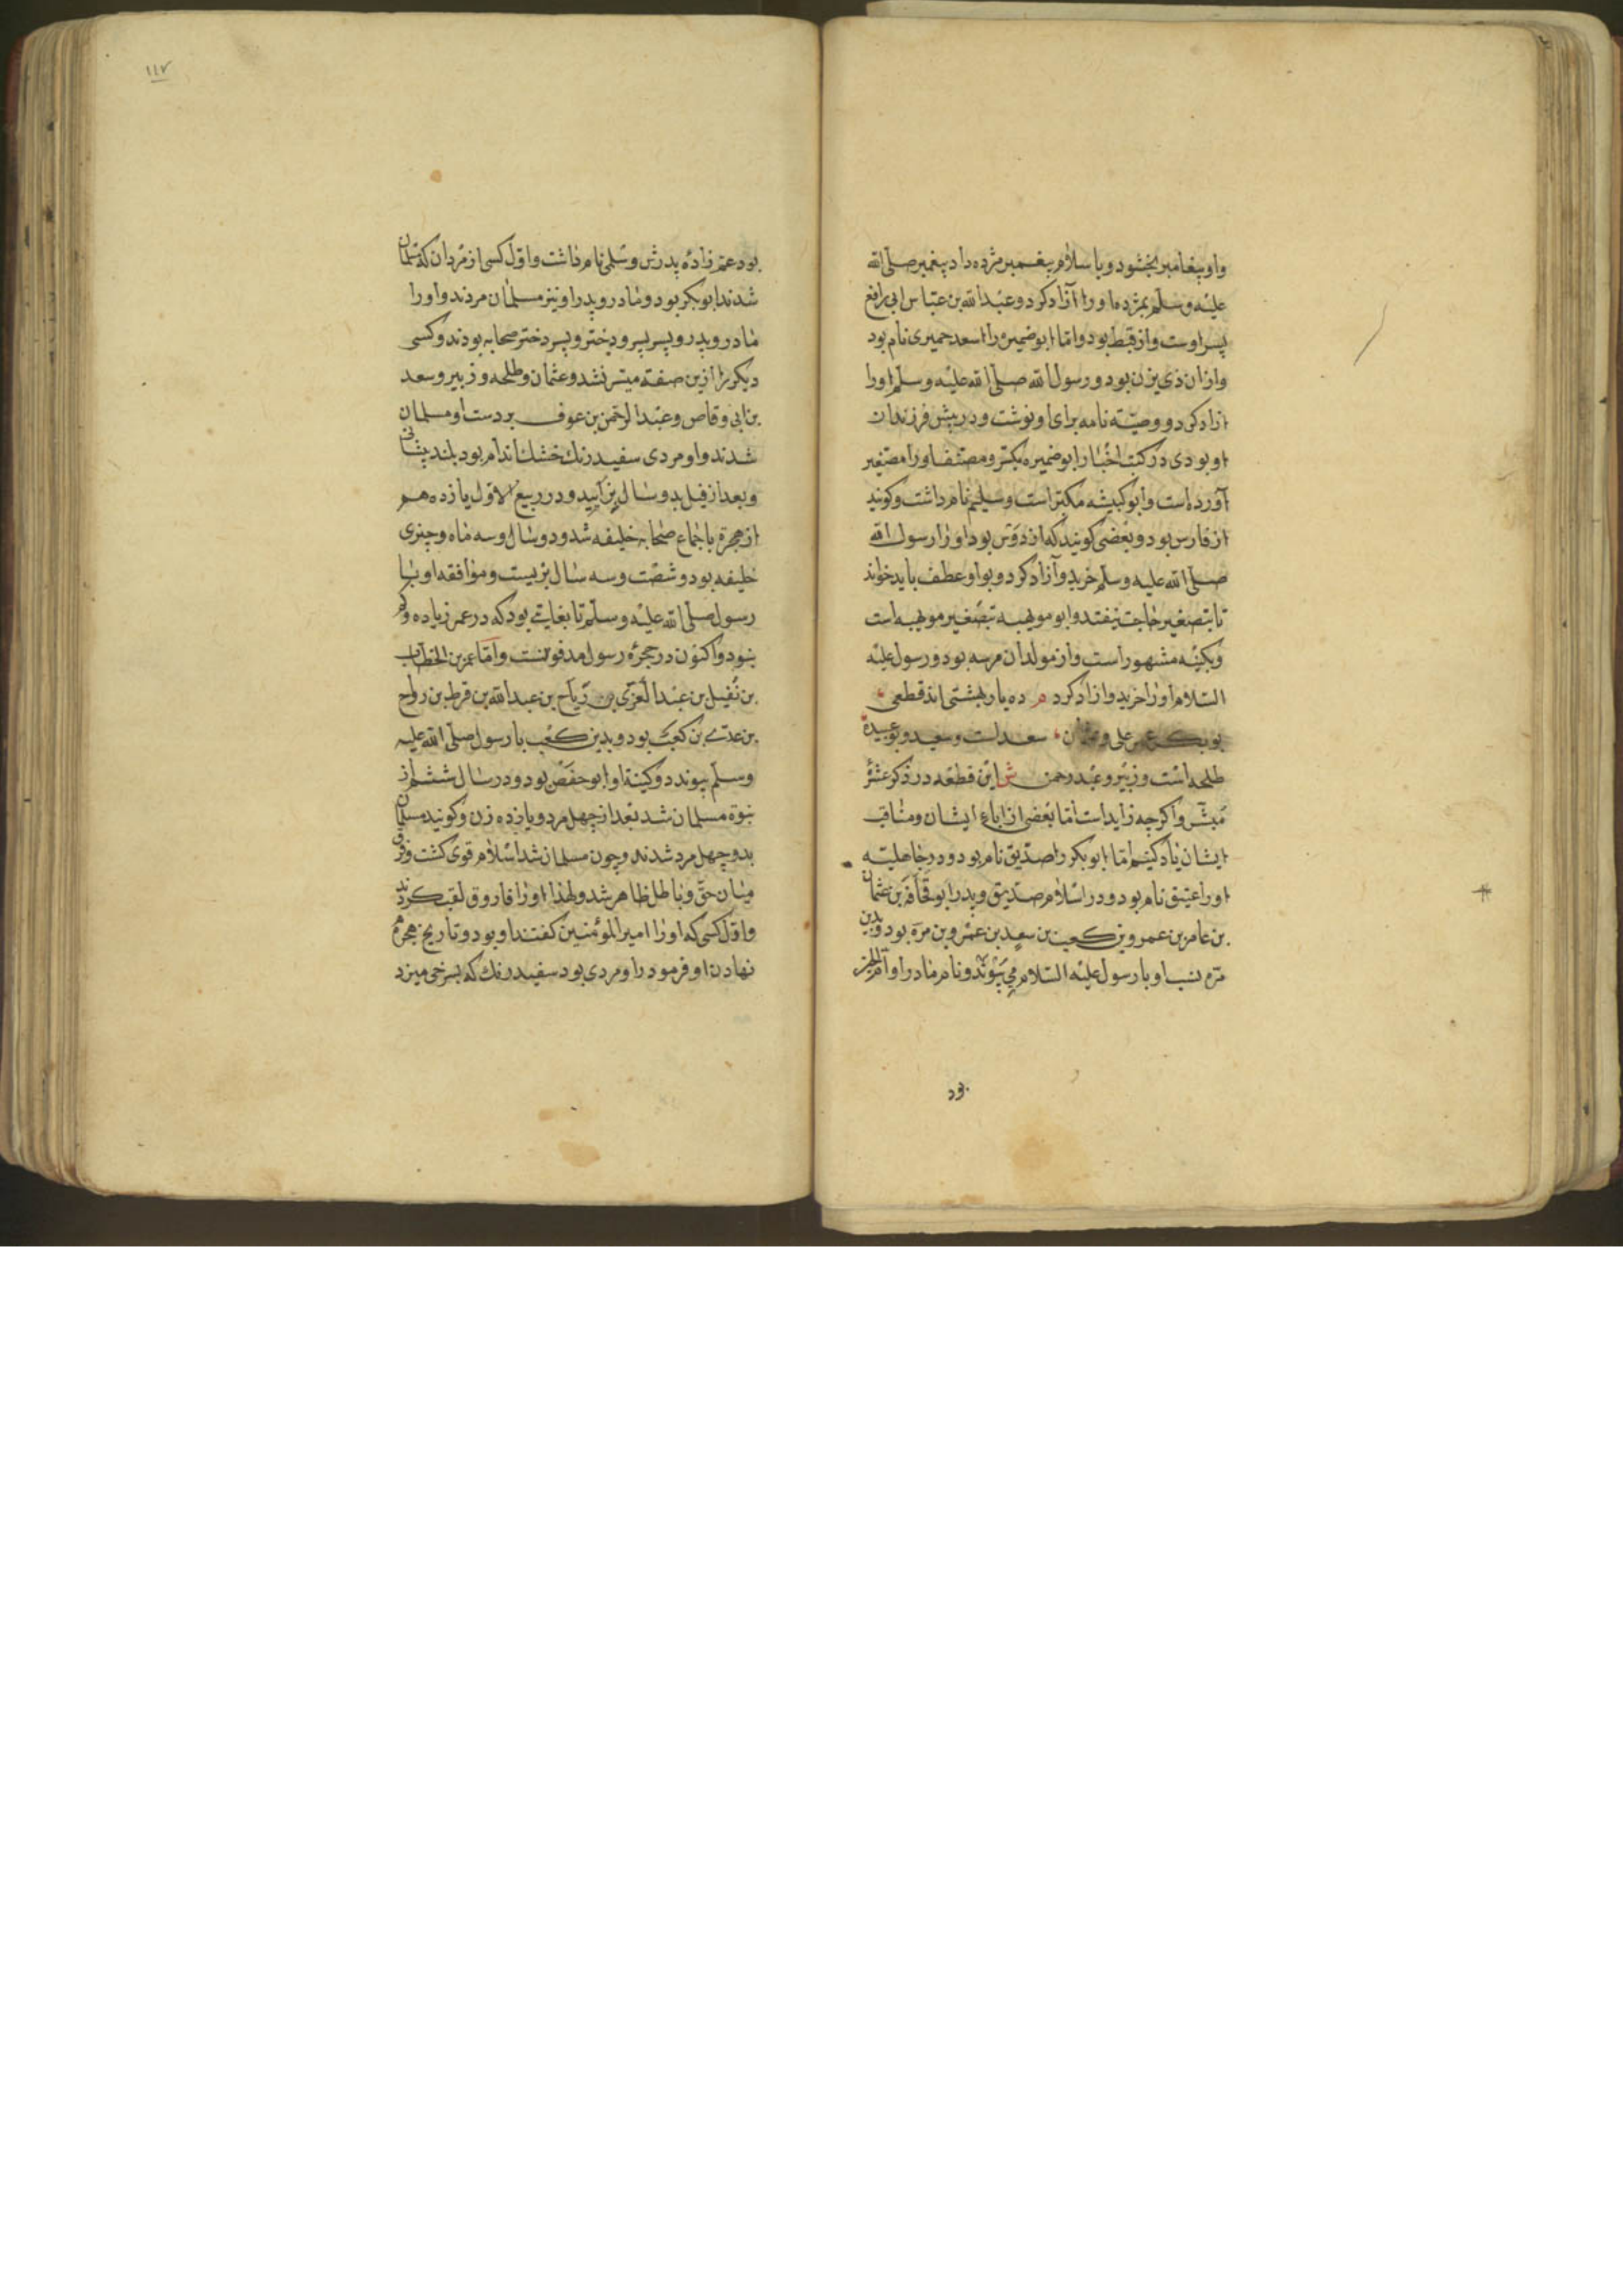 واو بپیغامبر بخشود و باسلام پیغمبر مژده داد پیغمبر صلی الله
علیه وسلم بمژده او را آزاد کرد و عبد الله بن عباس ابی رافع
پسر اوست و از قبط بود و اما ابو ضمیره را اسعد حمیری نام بود
و از ان ذی یزن بود و رسول الله صلی الله علیه وسلم او را
ازاد کرد و وصیّة نامه برای او نوشت و در پیش فرزندان
او بودی در کتب اخبار ابو ضمیره مکبّر و مصنف او را مصغیر
آورده است و ابو کبیشه مکبّر است و سلیم نام داشت و کویند
از فارس بود و بعضی کویند که از دوس بود او را رسول الله
صلی الله علیه وسلم خرید و آزاد کرد و بواو عطف باید خواند
تا بتصغیر حاجت نیفتد و ابو مویهبه بتصغیر موهبه است
و بکنیه مشهور است و از مولدان مرسه بود و رسول علیه
السلام او را خرید و ازاد کرد م ده یار بهشتی اند قطعی
بوبکر عمر علی و عثمان سعدست و سعید و بوعبیده
طلحه است و زبیر و عبد رحمن ش این قطعه در ذکر عشره
مبشر و اکرچه زاید است اما بعضی از اباء ایشان و مناقب
ایشان یاد کنیم اما ابو بکر را صدیق نام بود و در جاهلیته
او را عتیق نام بود و در اسلام صدیق و پدر ابو قحافه بن عثمان
بن عامر بن عمرو بن کعب بن سعد بن عمرو بن مره بود و بدین
مره نسب او با رسول علیه السلام می پیوندد و نام مادر او ام الخیر
بود
١١٧
بود عم زاده پدرش و سلمی نام داشت و اول کسی از مردان که مسلمان
شدند ابو بکر بود و مادر و پدر او نیز مسلمان مردند و او را
مادر و پدر و پسر پسر و دختر و پسر دختر صحابه بودند و کسی
دیکر را ازین صفته میسر نشد و عثمان و طلحه و زبیر و سعد
بن ابی وقاص و عبد الرحمن بن عوف بر دست او مسلمان
شدند و او مردی سفید رنک خشک اندام بود بلند پیشانی
و بعد از فیل بدو سال بزایید و در ربیع الاول یازدهم
از هجرة باجماع صحابه خلیفه شد و دو سال و سه ماه و چیزی
خلیفه بود و شصت و سه سال بزیست و موافقه او با
رسول صلی الله علیه وسلم تا بغایتی بود که در عمر زیاده و کم
نبود و اکنون در حجره رسول مدفونست و اما عمر بن الخطاب
بن نفیل بن عبد العزی بن ریاح بن عبد الله بن قرط بن رواح
بن عدی بن کعب بود و بدین کعب با رسول صلی الله علیه
وسلم پیوندد و کینة او ابو حفص بود و در سال ششم از
نبوة مسلمان شد بعد از چهل مرد و یازده زن و کویند مسلمانان
بدو چهل مرد شدند و چون مسلمان شد اسلام قوی کشت و فرق
میان حق و باطل ظاهر شد و لهذا او را فاروق لقب کردند
و اول کسی که او را امیر المؤمنین کفتند او بود و تاریخ هجرة هم
نهادن او فرمود را و مردی بود سفید رنک که بسرخی میزد